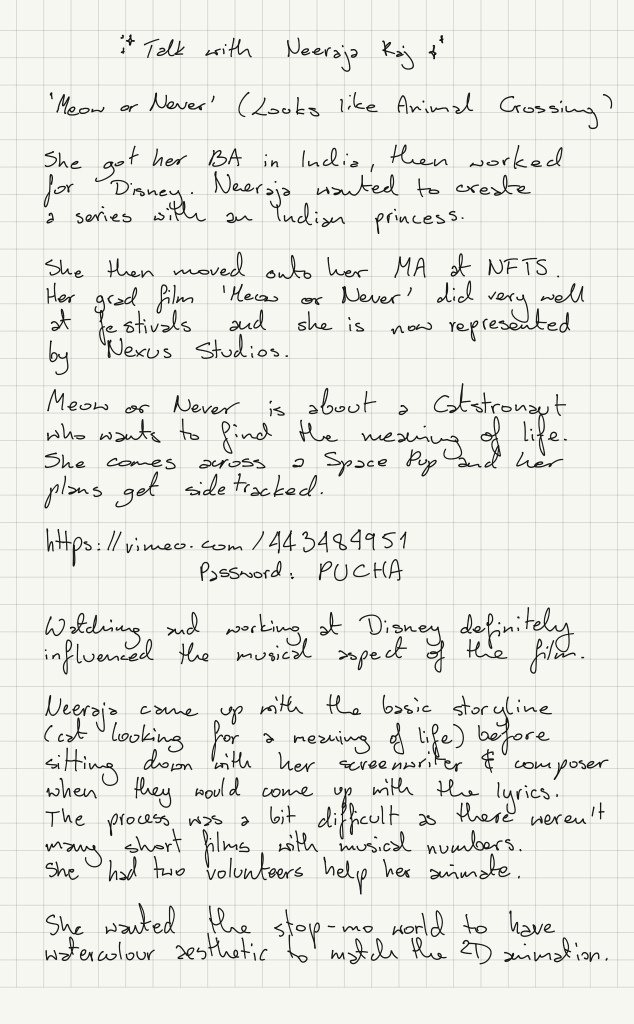 Talk with Neeraja Raj
'Meow or Never' (Looks like Animal Crossing)
She got her BA in India, then worked
for Disney. Neeraja wanted to create
a series with an Indian princess.
She then moved onto her MA at NFTS.
Her grad film 'Meow or Never' did very well
at festivals and she is now represented
by Nexus Studios.
Meow or Never is about a Catstronaut
who wants to find the meaning of life.
She comes across a Space Pup and her
plans get sidetracked.
https://vimeo.com/443484951
Password: PUCHA
Watching and working at Disney definitely
influenced the musical aspect of the film.
Neeraja came up with the basic storyline
(cat looking for a meaning of life) before
sitting down with her screenwriter & composer
when they would come up with the lyrics.
The process was a bit difficult as there weren't
many short films with musical numbers.
She had two volunteers help her animate.
She wanted the stop-mo world to have
watercolour aesthetic to match the 2D animation.